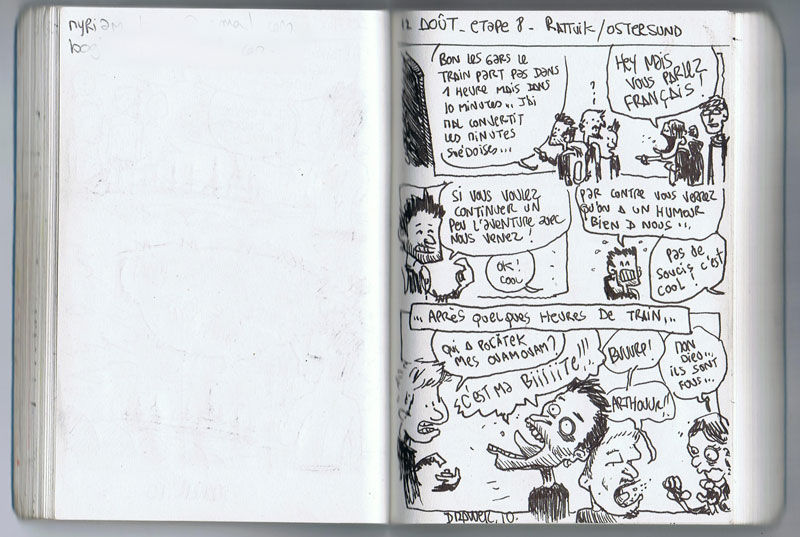 myriam
bog
12 DOÛT - ETAPE 8 - RATTVIK/OSTERSUND
BON LES GARS LE
TRAIN PART PAS DANS
1 HEURE MAIS DANS
10 MINUTES.. J'AI
MAL CONVERTIT
LES MINUTES
SUÉDOISES...
?
HEY MAIS
VOUS PARLEZ
FRANÇAIS!
SI VOUS VOULEZ
CONTINUER UN
PEU L'AVENTURE AVEC
NOUS VENEZ!
OK!
COOL
PAR CONTRE VOUS VERREZ
QU'ON A UN HUMOUR
BIEN A NOUS...
PAS DE
SOUCIS C'EST
COOL!
... APRÈS QUELQUES HEURES DE TRAIN...
QUI A POCATEK
MES OUAMOUAM?
C'EST MA BIIIIITE!!!
BUURP!
ARTHOUUR!!
MON
DIEU...
ILS SONT
FOUS...
DRAWER, 10.